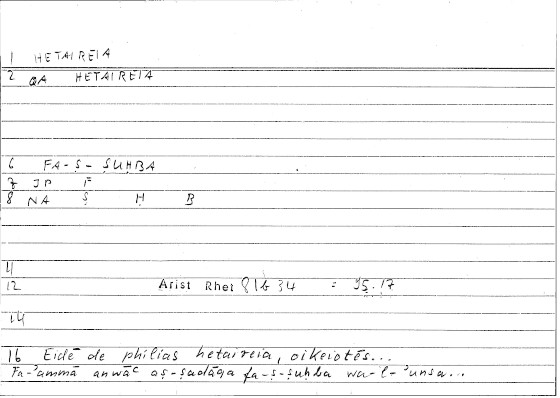 1 HETAIREIA
2 QA HETAIREIA
6 FA-Ṣ-ṢUḤBA
7 JP F
8 NA Ṣ Ḥ B
11
12 Arist Rhet 81b34 = 95.17
14
16 Eidē de philias hetaireia, oikeiotēs...
Fa-'ammā anwāʿ aṣ-ṣadāqa fa-ṣ-ṣuḥba wa-l-'unsa...